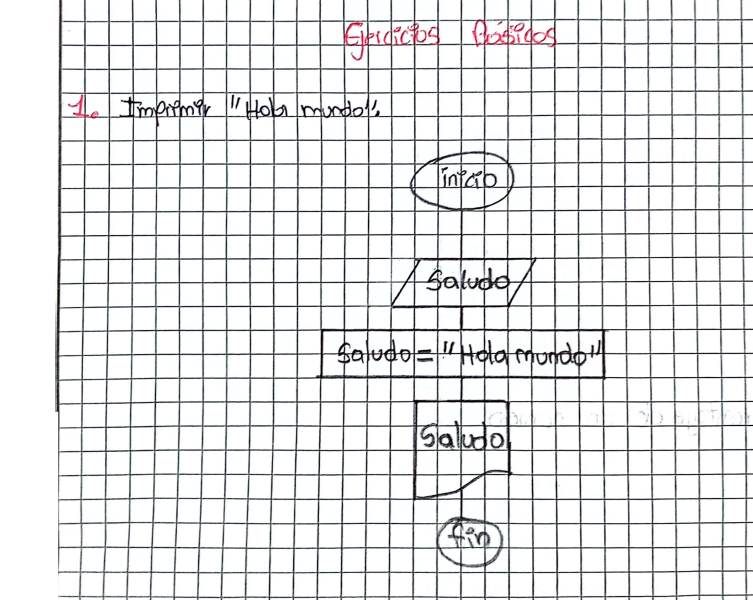 Ejercicios Básicos
1. Imprimir "Hola mundo".
inicio
Saludo
Saludo = "Hola mundo"
Saludo
fin